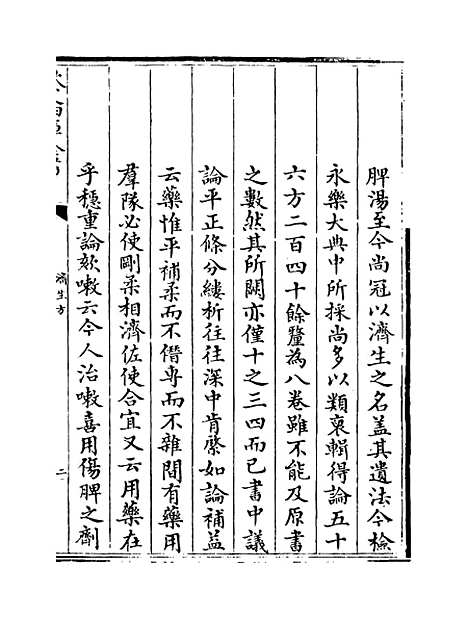 脾湯至今尚冠以濟生之名盖其遺法今檢
永樂大典中所採尚多以類裒輯得論五十
六方二百四十餘釐為八卷雖不能及原書
之數然其所闕亦僅十之三四而已書中議
論平正條分縷析往往深中肯綮如論補益
云藥惟平補柔而不僭専而不雜間有藥用
羣隊必使剛柔相濟佐使合宜又云用藥在
乎穩重論欬嗽云今人治嗽喜用傷脾之劑
濟生方
二